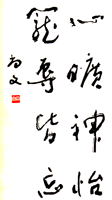 心曠神怡
寵辱皆忘
尚文